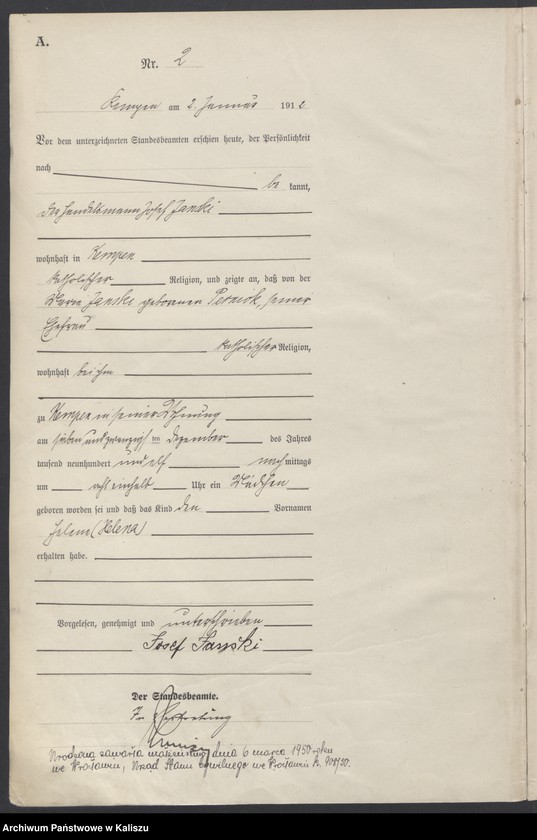 A.
Nr. 2
Kempen am 2. Januar 1912
Vor dem unterzeichneten Standesbeamten erschien heute, der Persönlichkeit
nach be kannt,
der Handelsmann Josef Janski
wohnhaft in Kempen
katholischer Religion, und zeigte an, daß von der
Janski geborenen seiner
Ehefrau
katholischer Religion,
wohnhaft bei ihm
zu Kempen in seiner Wohnung
am sieben und zwanzigsten Dezember des Jahres
tausend neunhundert und elf nach mittags
um acht einhalb Uhr ein Mädchen
geboren worden sei und daß das Kind den Vornamen
Helene (Helena)
erhalten habe.
Vorgelesen, genehmigt und unterschrieben
Josef Janski
Der Standesbeamte.
In Vertretung
zawarła dnia 6 marca 1950 roku
we Wrocławiu, Urząd Stanu Cywilnego we Wrocławiu
Archiwum Państwowe w Kaliszu